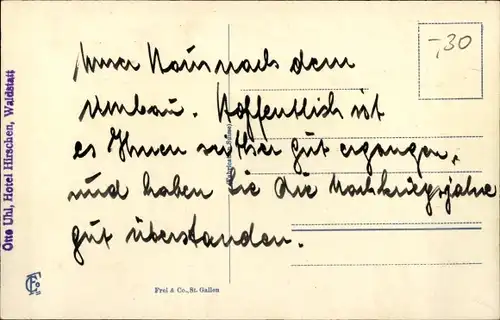 -,30
Unser Haus nach dem
Umbau. Hoffentlich ist
es Ihnen seither gut ergangen,
und haben Sie die Nachkriegsjahre
gut überstanden.
Otto Uhl, Hotel Hirschen, Waldstatt
Frei & Co., St. Gallen